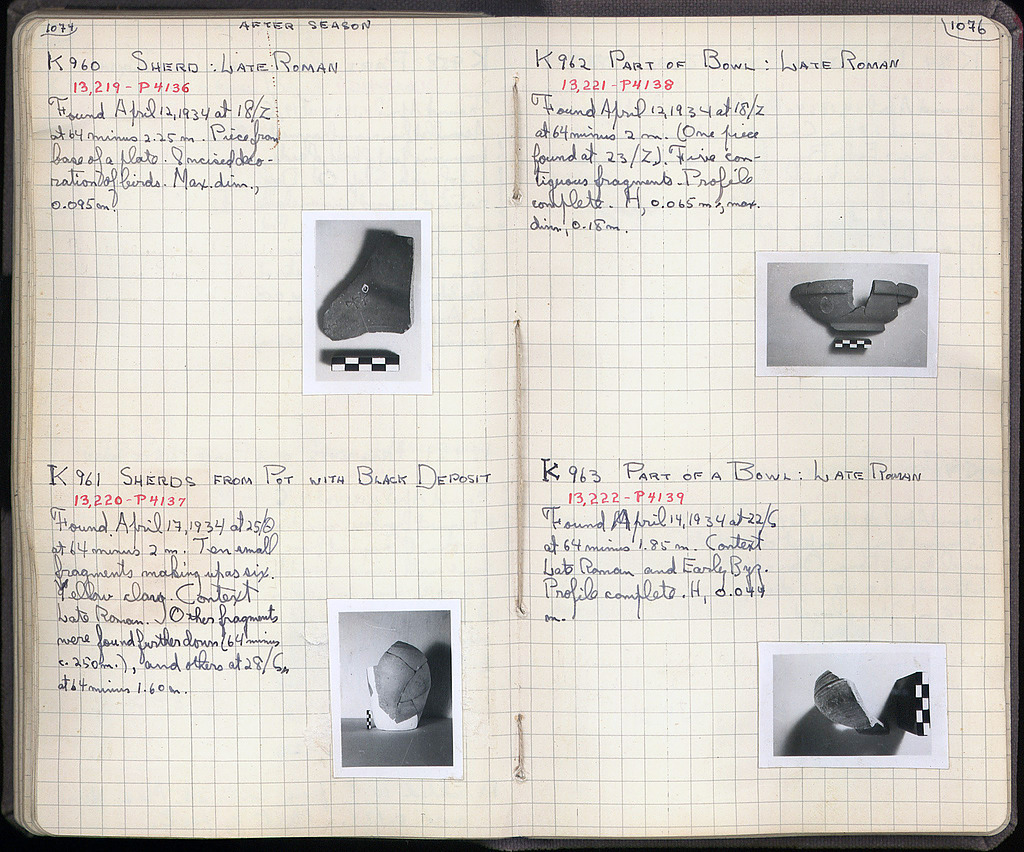 1074
AFTER SEASON
K 960 SHERD : LATE ROMAN
13,219 - P 4136
Found April 12, 1934 at 18/Z
at 64 minus 2.25 m. Piece from
base of a plate. Incised deco-
ration of birds. Max. dim.,
0.095 m.
K 961 SHERDS FROM POT WITH BLACK DEPOSIT
13,220 - P 4137
Found April 17, 1934 at 25/Θ
at 64 minus 2 m. Ten small
fragments making up as six.
Yellow clay. Context
Late Roman. Other fragments
were found further down (64 minus
c. 2.50 m.), and others at 28/
at 64 minus 1.60 m.
1076
K 962 PART OF BOWL : LATE ROMAN
13,221 - P 4138
Found April 12, 1934 at 18/Z
at 64 minus 2 m. (One piece
found at 23/Z). Five con-
tiguous fragments. Profile
complete. H, 0.065 m., max.
dim, 0.18 m.
K 963 PART OF A BOWL : LATE ROMAN
13,222 - P 4139
Found April 14, 1934 at 22/
at 64 minus 1.85 m. Context
Late Roman and Early Byz.
Profile complete. H, 0.044
m.